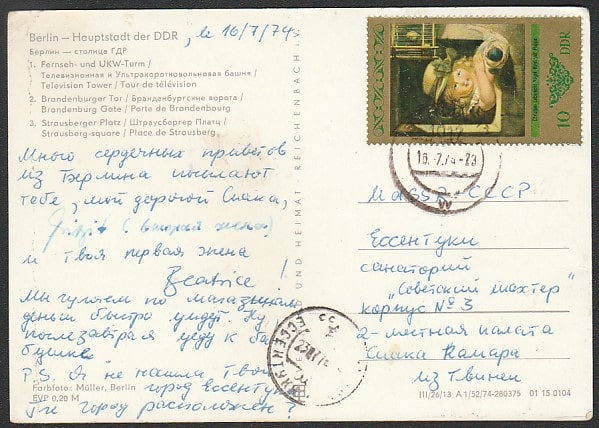 Berlin – Hauptstadt der DDR, le 16/7/74
Берлин — столица ГДР
1. Fernseh- und UKW-Turm /
Телевизионная и Ультракоротковолновая башня /
Television Tower / Tour de télévision
2. Brandenburger Tor / Бранденбургские ворота /
Brandenburg Gate / Porte de Brandenbourg
3. Strausberger Platz / Штраусбергер Платц /
Strausberg-square / Place de Strausberg
Много сердечных приветов
из Берлина посылают
тебе, мой дорогой Сиака,
(вторая жена)
и твоя первая жена
Beatrice!
Мы гуляем по магазинам
деньги быстро уйдут. Ну
послезавтра я еду к ба
бушке
P.S. Я не нашла твой
город Ессентуки
Где город расположен?
Farbfoto: Müller, Berlin
EVP 0,20 M
UND HEIMAT REICHENBACH I. V.
10 DDR
16.-7.74-23
СССР
Ессентуки
санаторий
"Советский шахтер"
корпус № 3
2-местная палата
Сиака Камара
из Гвинеи
III/26/13 A 1/52/74-280375 01 15 0104